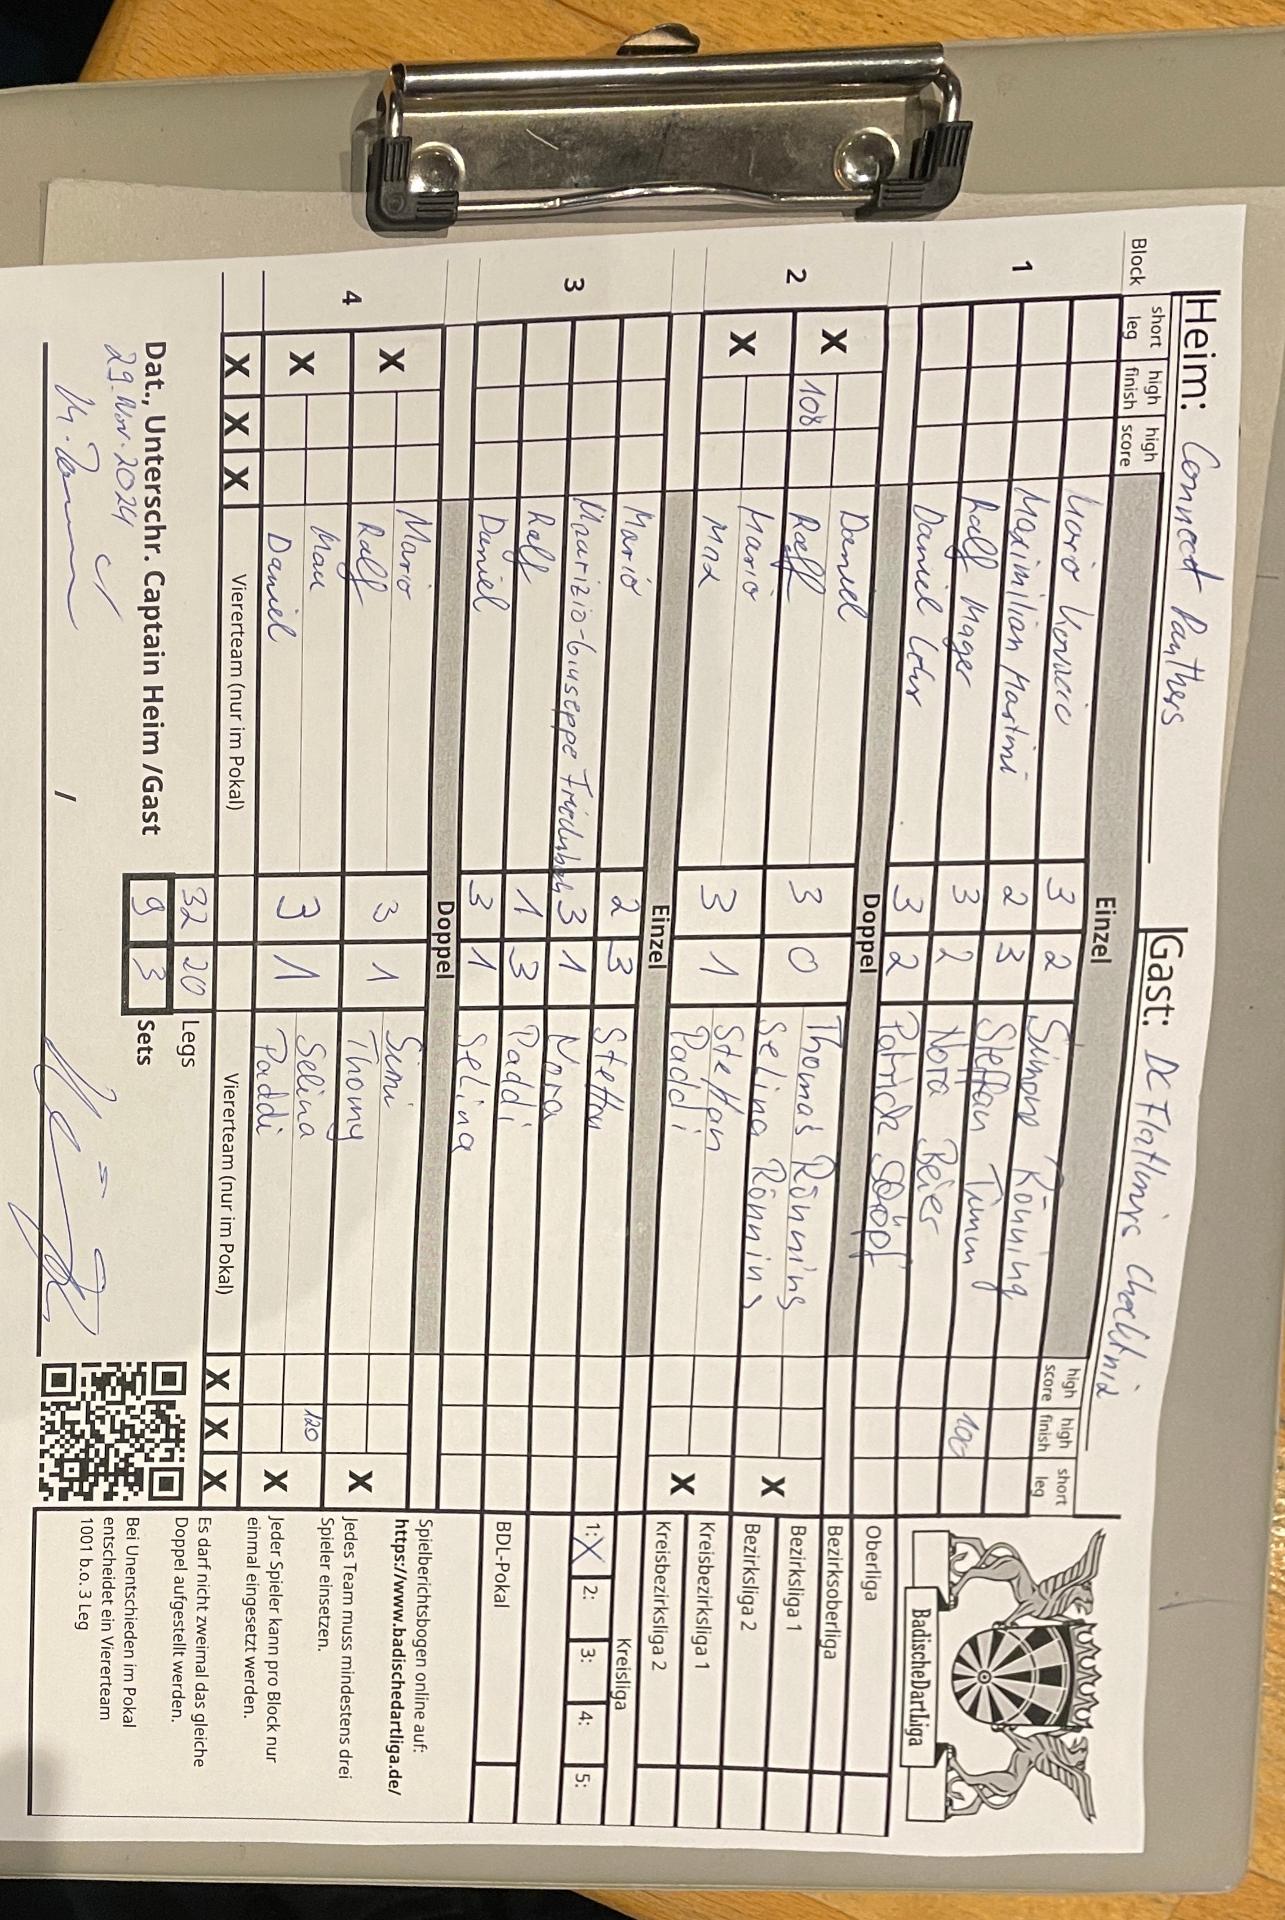 Heim: Connect Panthers Gast: DC Flatliners
Block short leg high finish high score Einzel high score high finish short leg
1 Mario 3 2 Simone Rönning
Maximilian Martini 2 3 Steffan Timm
Ralf Mager 3 2 Nora Beier 100
Daniel Lehr 3 2 Patrick Schöpf
Doppel
2 X Daniel 3 0 Thomas Rönning X
108 Ralf Selina Rönning
X Mario 3 1 Steffan X
Max Paddi
Einzel
3 Mario 2 3 Steffan
Maurizio-Giuseppe 3 1 Nora
Ralf 1 3 Paddi
Daniel 3 1 Selina
Doppel
4 X Mario 3 1 Simi X
Ralf Thomy
X Max 3 1 Selina 120 X
Daniel Paddi
X X X Viererteam (nur im Pokal) Viererteam (nur im Pokal) X X X
32 20 Legs
Dat., Unterschr. Captain Heim /Gast 9 3 Sets
29. Nov. 2024
/
BadischeDartLiga
Oberliga
Bezirksoberliga
Bezirksliga 1
Bezirksliga 2
Kreisbezirksliga 1
Kreisbezirksliga 2
Kreisliga
1: X 2: 3: 4: 5:
BDL-Pokal
Spielberichtsbogen online auf:
https://www.badischedartliga.de/
Jedes Team muss mindestens drei
Spieler einsetzen.
Jeder Spieler kann pro Block nur
einmal eingesetzt werden.
Es darf nicht zweimal das gleiche
Doppel aufgestellt werden.
Bei Unentschieden im Pokal
entscheidet ein Viererteam
1001 b.o. 3 Leg